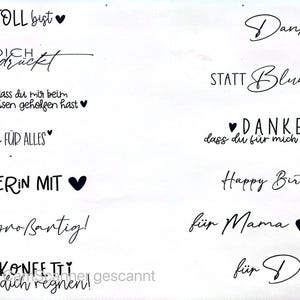 OLL bist
DICH
drückt
dass du mir beim
sen geholfen hast
FÜR ALLES
ERiN MIT
großartig!
KONFETTi
dich regnen!
gescannt
Dan
STATT Blu
DANKE
dass du für mich
Happy Bir
für Mama
für D